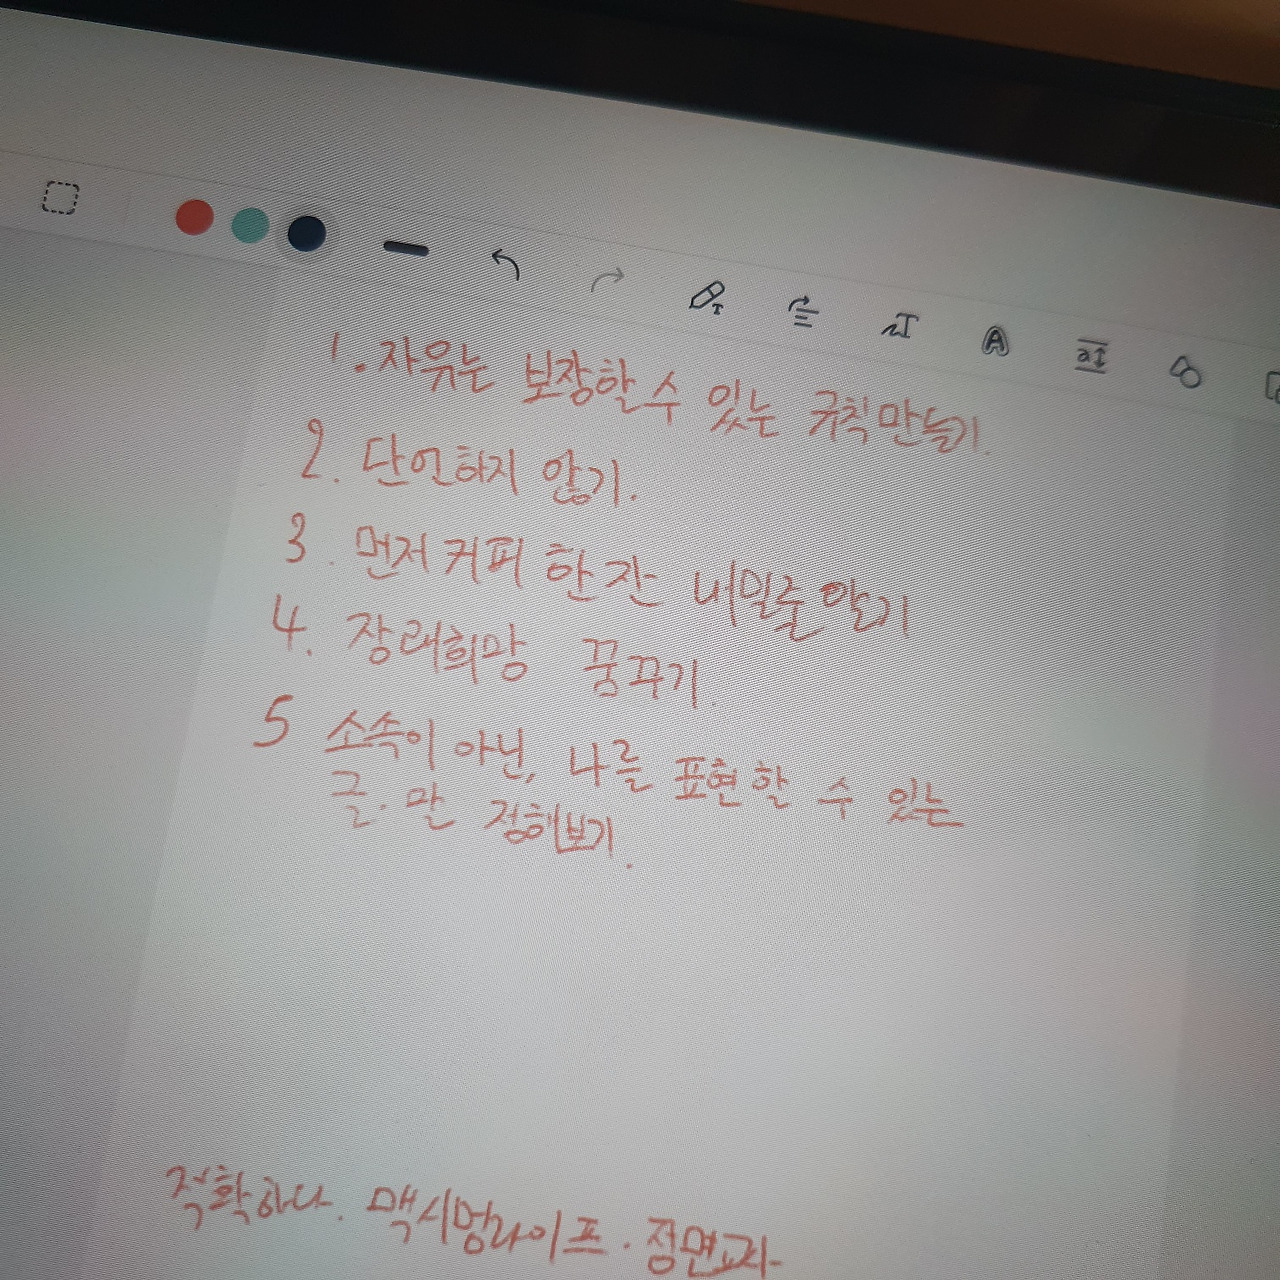 1. 자유는 보장할 수 있는 규칙만들기.
2. 단언하지 않기.
3. 먼저 커피 한 잔 내밀줄 알기
4. 장래희망 꿈꾸기.
5 소속이 아닌, 나를 표현할 수 있는
글. 말 정해보기.
적확하다. 맥시멈라이프. 정면교사